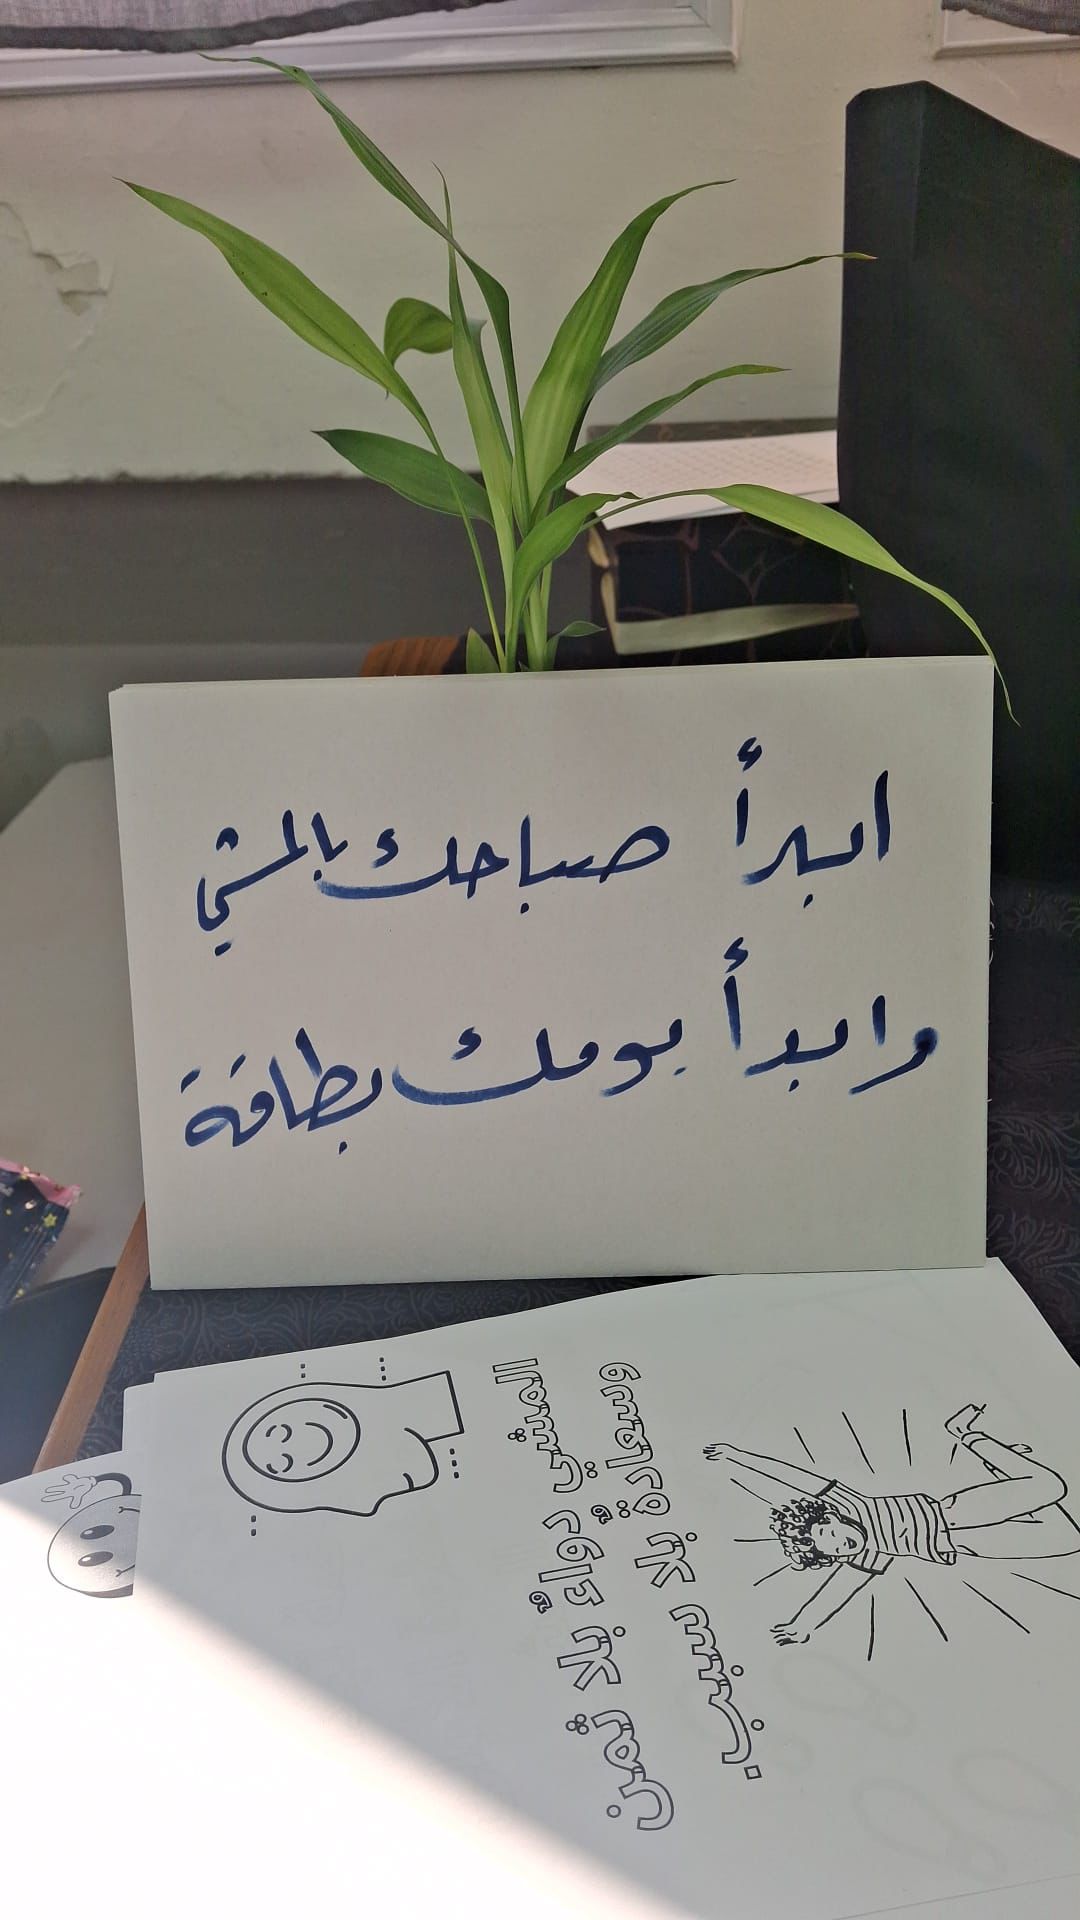 ابدأ صباحك بالمشي
وابدأ يومك بطاقة
المشي دواءٌ بلا ثمن
وسعادةٌ بلا سبب.